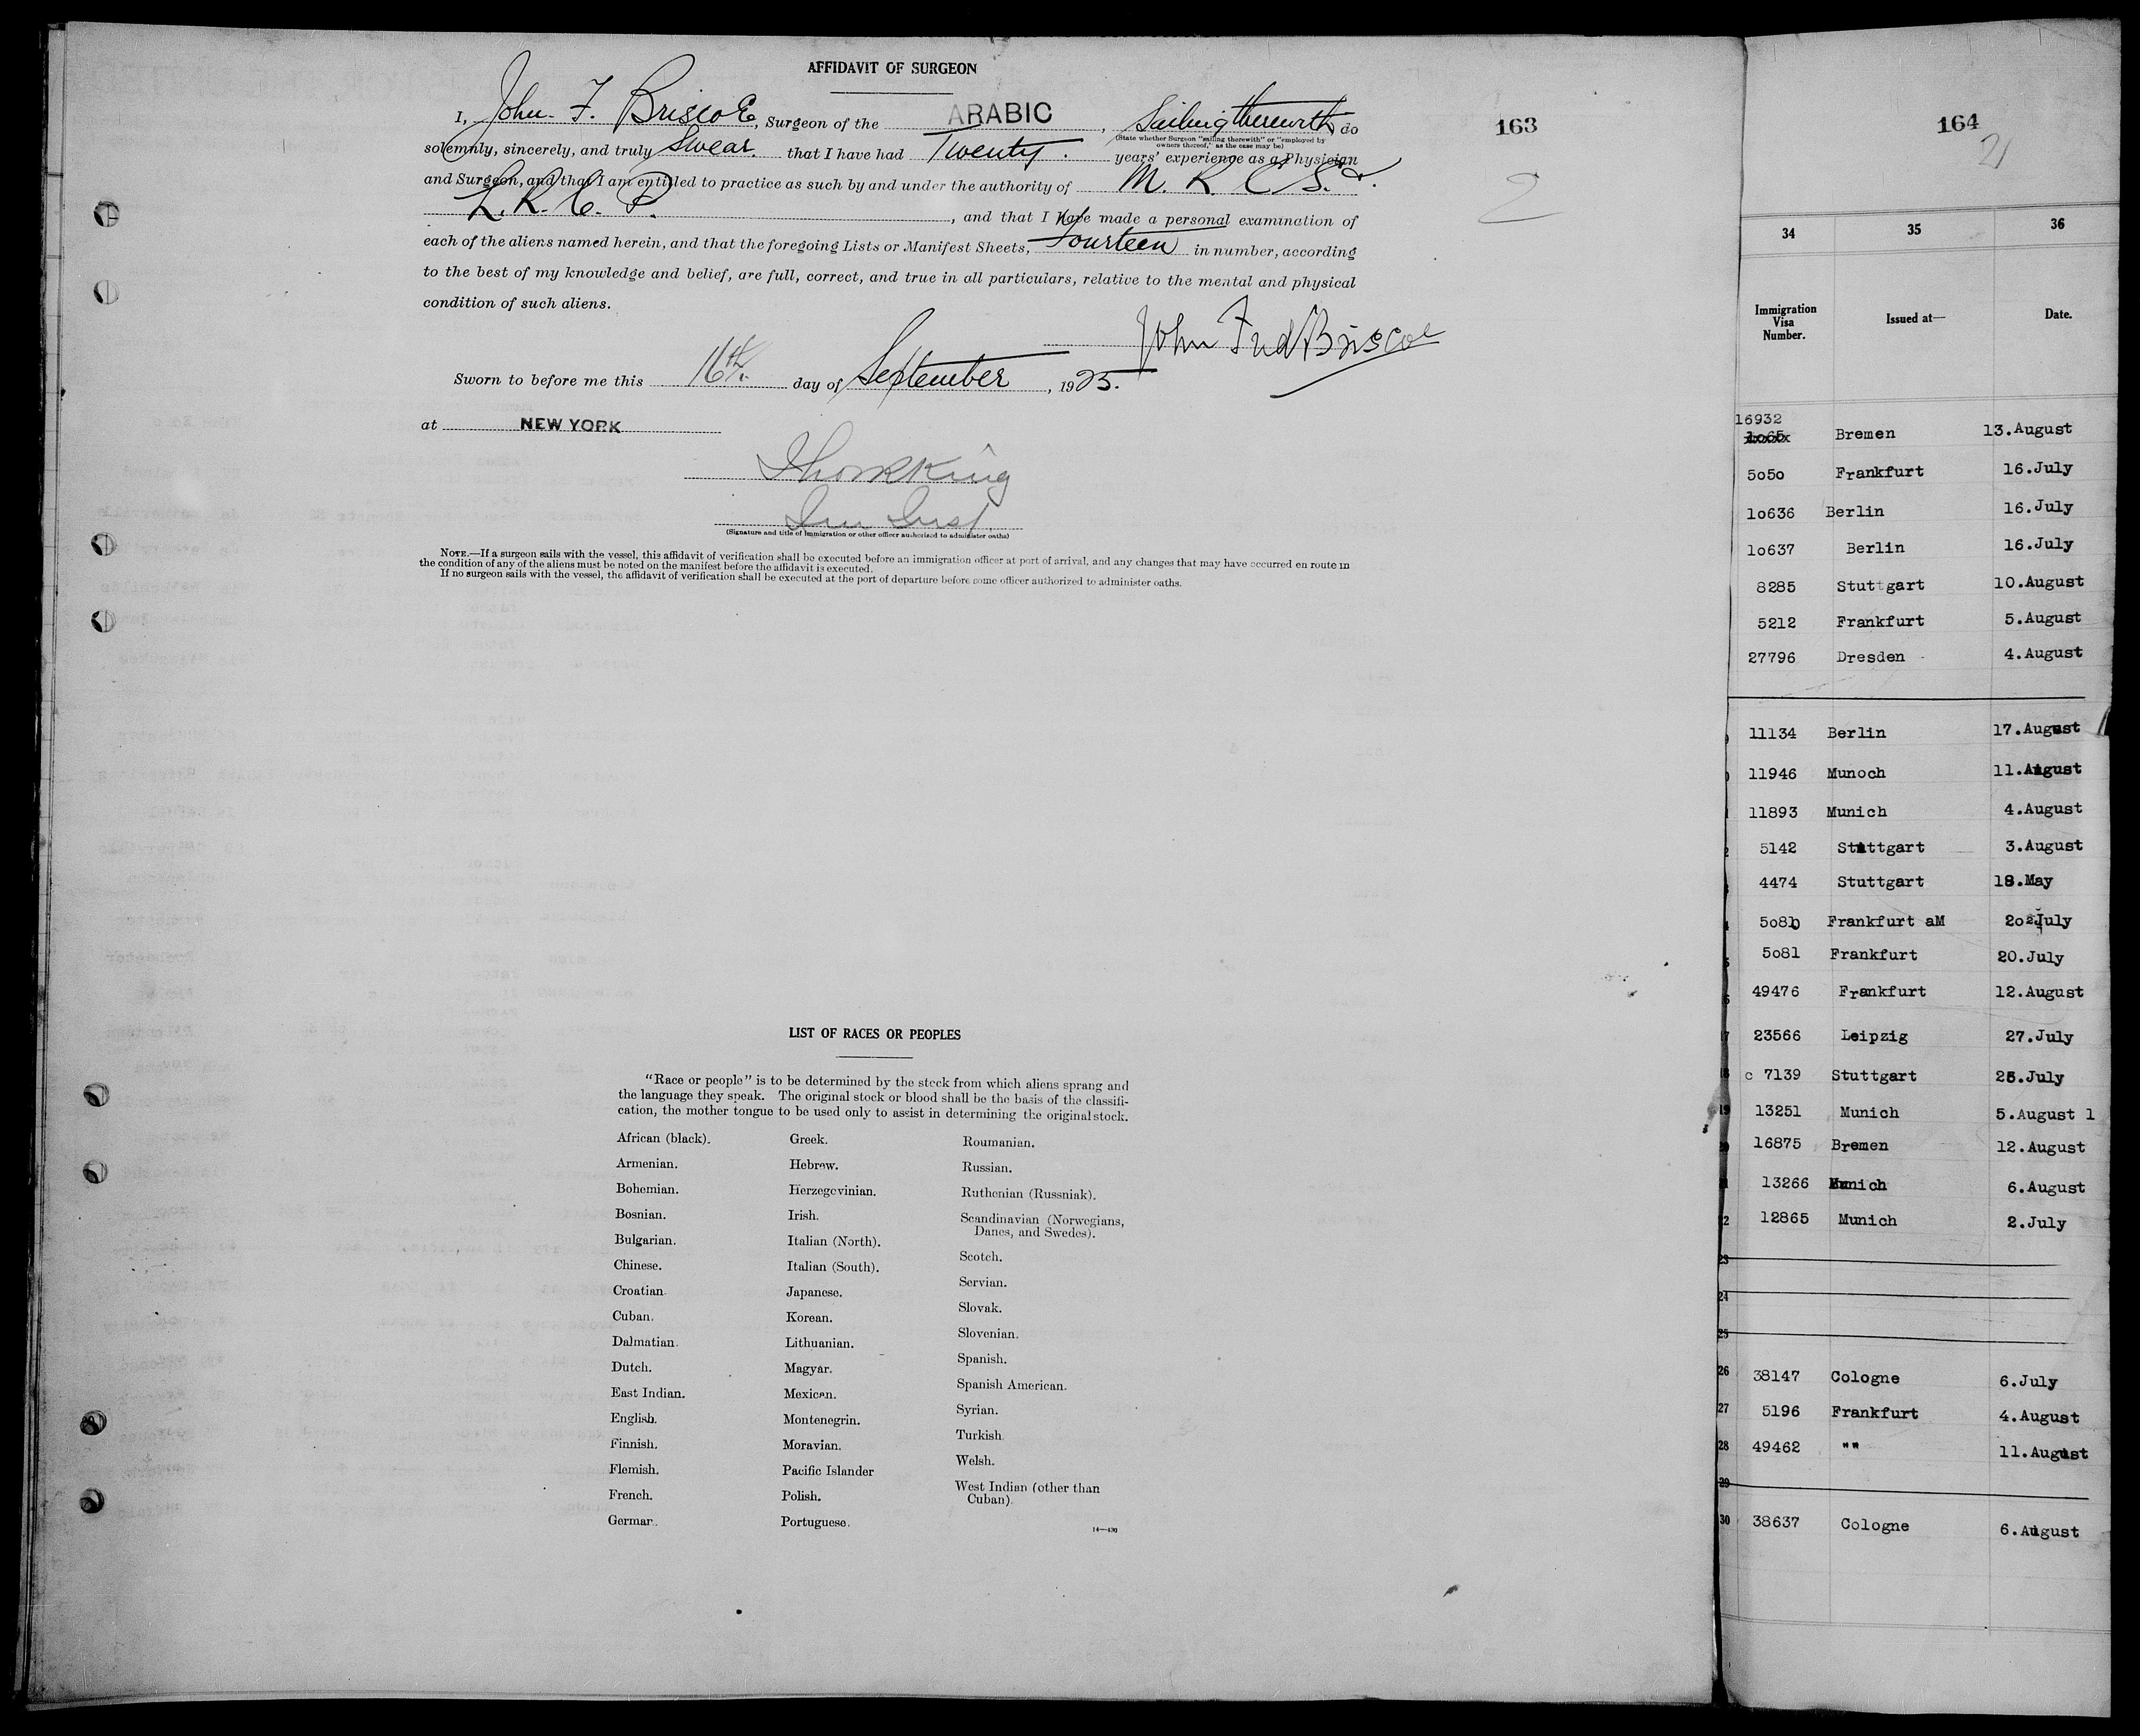 AFFIDAVIT OF SURGEON
I, John F. Briscoe, Surgeon of the ARABIC, Sailing therewith do
(State whether Surgeon "sailing therewith" or "employed by
owners thereof," as the case may be)
solemnly, sincerely, and truly Swear that I have had Twenty. years' experience as a Physician
and Surgeon, and that I am entitled to practice as such by and under the authority of M. R. C. S. &.
L. R. C. P., and that I have made a personal examination of
each of the aliens named herein, and that the foregoing Lists or Manifest Sheets, Fourteen in number, according
to the best of my knowledge and belief, are full, correct, and true in all particulars, relative to the mental and physical
condition of such aliens.
John Fred Briscoe
Sworn to before me this 16th. day of September, 1925.
at NEW YORK
(Signature and title of Immigration or other officer authorized to administer oaths)
NOTE.—If a surgeon sails with the vessel, this affidavit of verification shall be executed before an immigration officer at port of arrival, and any changes that may have occurred en route in
the condition of any of the aliens must be noted on the manifest before the affidavit is executed.
If no surgeon sails with the vessel, the affidavit of verification shall be executed at the port of departure before some officer authorized to administer oaths.
163
2
LIST OF RACES OR PEOPLES
"Race or people" is to be determined by the stock from which aliens sprang and
the language they speak. The original stock or blood shall be the basis of the classifi-
cation, the mother tongue to be used only to assist in determining the original stock.
African (black).
Armenian.
Bohemian.
Bosnian.
Bulgarian.
Chinese.
Croatian.
Cuban.
Dalmatian.
Dutch.
East Indian.
English.
Finnish.
Flemish.
French.
German.
Greek.
Hebrew.
Herzegovinian.
Irish.
Italian (North).
Italian (South).
Japanese.
Korean.
Lithuanian.
Magyar.
Mexican.
Montenegrin.
Moravian.
Pacific Islander
Polish.
Portuguese.
Roumanian.
Russian.
Ruthenian (Russniak).
Scandinavian (Norwegians,
Danes, and Swedes).
Scotch.
Servian.
Slovak.
Slovenian.
Spanish.
Spanish American.
Syrian.
Turkish.
Welsh.
West Indian (other than
Cuban).
14—430
164
21
34 35 36
Immigration
Visa
Number.
Issued at—
Date.
16932
Bremen 13.August
5050 Frankfurt 16.July
10636 Berlin 16.July
10637 Berlin 16.July
8285 Stuttgart 10.August
5212 Frankfurt 5.August
27796 Dresden 4.August
11134 Berlin 17.August
11946 Munoch 11.August
11893 Munich 4.August
5142 Stuttgart 3.August
4474 Stuttgart 18.May
Frankfurt aM July
5081 Frankfurt 20.July
49476 Frankfurt 12.August
23566 Leipzig 27.July
c 7139 Stuttgart July
19 13251 Munich 5.August 1
16875 Bremen 12.August
13266 Munich 6.August
12865 Munich 2.July
23
24
25
26 38147 Cologne 6.July
27 5196 Frankfurt 4.August
28 49462 "" 11.August
29
30 38637 Cologne 6.August